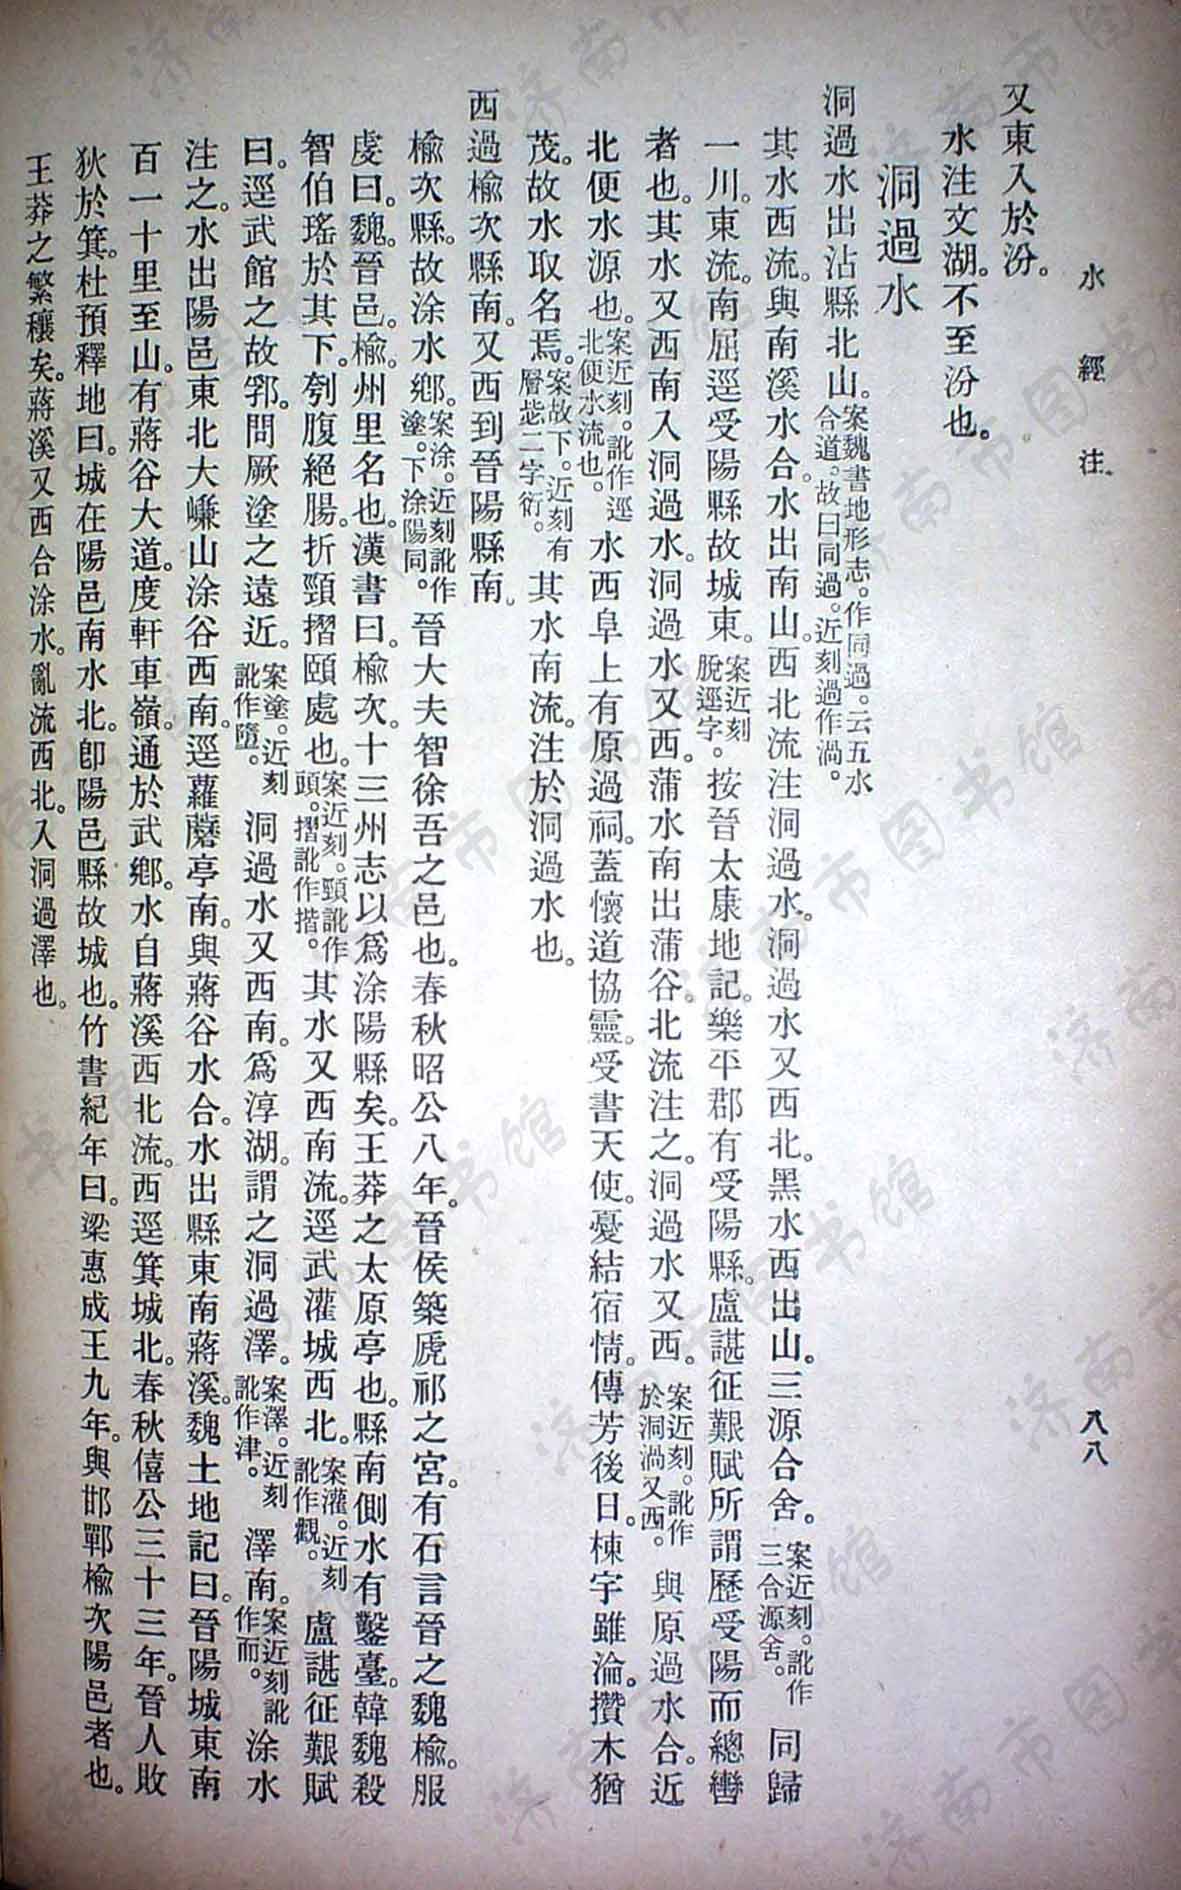 水經注
八八
又東入於汾。
水注文湖。不至汾也。
洞過水
洞過水出沾縣北山。案魏書地形志。作同過。云五水合道。故曰同過。近刻過作渦。
其水西流。與南溪水合。水出南山。西北流注洞過水。洞過水又西北。黑水西出山。三源合舍。案近刻。訛作三合源舍。同歸
一川。東流。南屈逕受陽縣故城東。案近刻脫逕字。按晉太康地記。樂平郡有受陽縣。盧諶征艱賦所謂歷受陽而總轡
者也。其水又西南入洞過水。洞過水又西。蒲水南出蒲谷。北流注之。洞過水又西。案近刻。訛作於洞渦又西。與原過水合。近
北便水源也。案近刻。訛作逕北便水流也。水西阜上有原過祠。蓋懷道協靈。受書天使。憂結宿情。傳芳後日。棟宇雖淪。攢木猶
茂。故水取名焉。案故下。近刻有層毖二字衍。其水南流。注於洞過水也。
西過榆次縣南。又西到晉陽縣南。
榆次縣。故涂水鄉。案涂。近刻訛作塗。下涂陽同。晉大夫智徐吾之邑也。春秋昭公八年。晉侯築虒祁之宮。有石言晉之魏榆。服
虔曰。魏。晉邑。榆。州里名也。漢書曰。榆次。十三州志以爲涂陽縣矣。王莽之太原亭也。縣南側水有鑿臺。韓魏殺
智伯瑤於其下。刳腹絕腸。折頸摺頤處也。案近刻。頸訛作頭。摺訛作揩。其水又西南流。逕武灌城西北。案灌。近刻訛作觀。盧諶征艱賦
曰。逕武館之故郛。問厥塗之遠近。案塗。近刻訛作墮。洞過水又西南。爲淳湖。謂之洞過澤。案澤。近刻訛作津。澤南。案近刻訛作而。涂水
注之。水出陽邑東北大嵰山涂谷西南。逕蘿蘑亭南。與蔣谷水合。水出縣東南蔣溪。魏土地記曰。晉陽城東南
百一十里至山。有蔣谷大道。度軒車嶺。通於武鄉。水自蔣溪西北流。西逕箕城北。春秋僖公三十三年。晉人敗
狄於箕。杜預釋地曰。城在陽邑南水北。卽陽邑縣故城也。竹書紀年曰。梁惠成王九年。與邯鄲榆次陽邑者也。
王莽之繁穰矣。蔣溪又西合涂水。亂流西北。入洞過澤也。